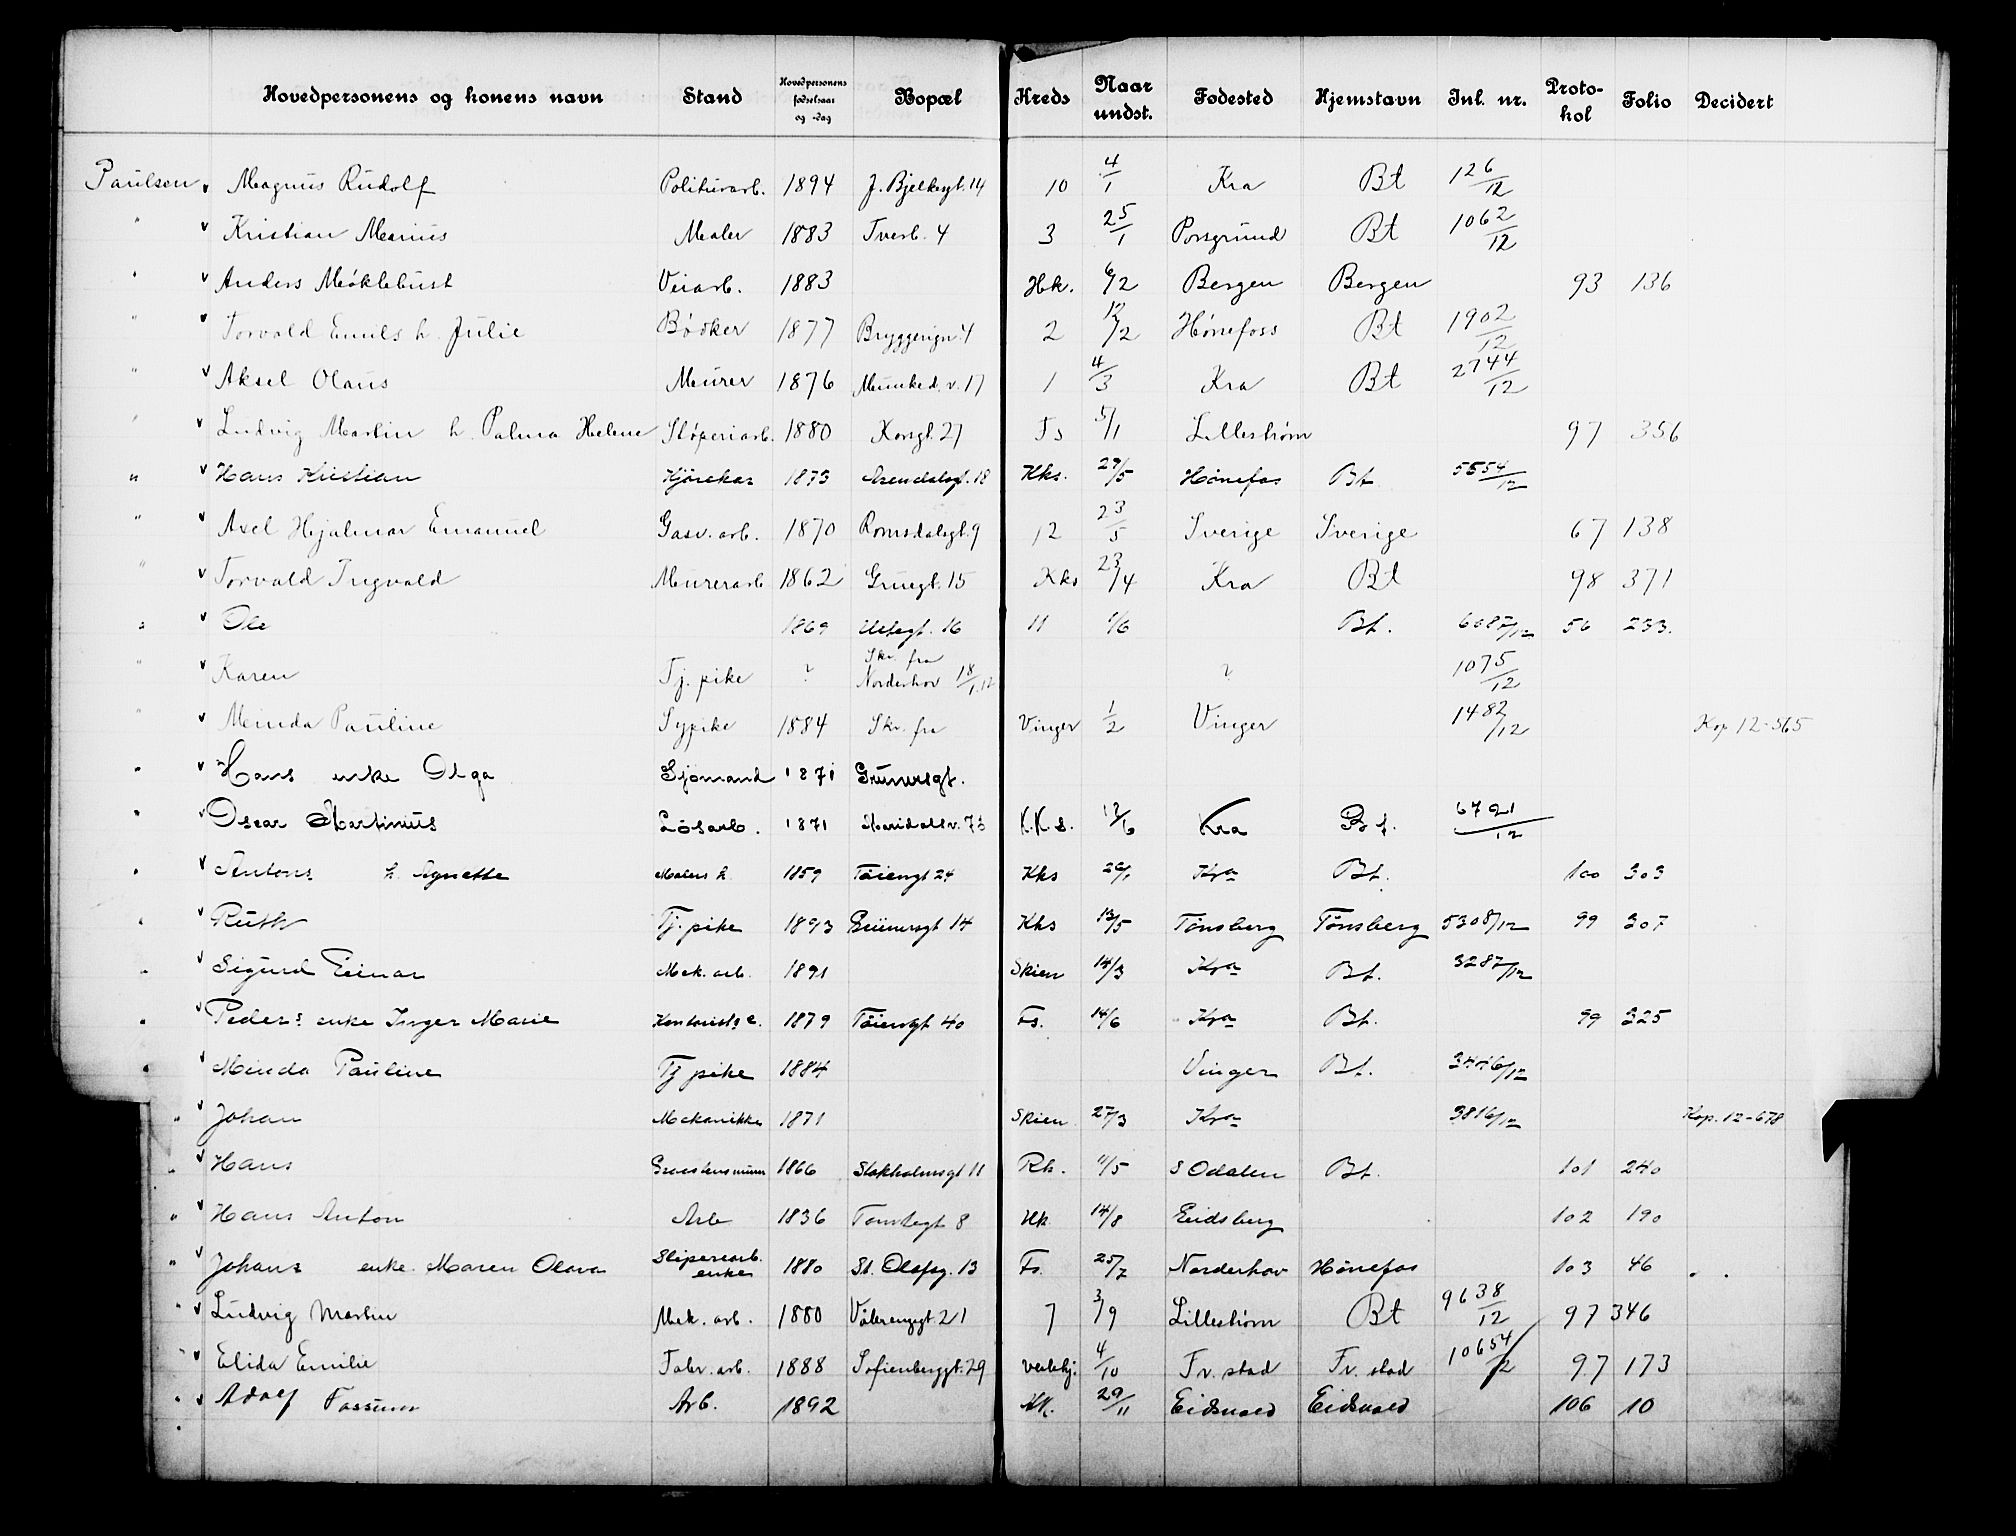 Hovedpersonens og konens navn Stand Hovedpersonens fødselsaar og -dag Bopæl Kreds Naar undst. Fødested Hjemstavn Inl. nr. Proto-kol Folio Decidert
Paulsen Magnus Rudolf Politurarb. 1894 J. Bjelkesgt. 14 10 4/1 Kra Bt 126/12
" Kristian Marius Maler 1883 Tverb. 4 3 25/1 Porsgrund Bt 1062/12
" Anders Møklebust Veiarb. 1883 Hk. 6/2 Bergen Bergen 93 136
" Torvald Emils h. Julie Bødker 1877 Bryggerign. 4 2 12/2 Hønefoss Bt 1902/12
" Aksel Olaus Murer 1876 Munked.v. 17 1 4/3 Kra Bt 2744/12
" Ludvig Martin h. Palma Helene Sløperiarb. 1880 Korsgt. 27 Fs 5/1 Lillestrøm 97 356
" Hans Kristian Kjørekar 1873 Arendalsgt. 18 Kks. 29/5 Hønefos Bt 5554/12
" Axel Hjalmar Emanuel Gasv. arb. 1870 Romsdalsgt. 9 12 23/5 Sverige Sverige 67 138
" Torvald Ingvald Murerarb 1862 Gruegt. 15 Kks 23/4 Kra Bt 98 371
" Ole 1869 Urtegt. 16 11 1/6 Bt. 6087/12 56 233.
" Karen Tj. pike ? Skr. fra Norderhov 18/1.12 ? 1075/12
" Minda Pauline Sypike 1884 Skr. fra Vinger 1/2 Vinger 1482/12 Kop 12-565
" Hans enke Olga Sjømand 1871 Grünersgt.
" Oscar Martinius Løsarb. 1871 Maridalsv. 73 K.K.s. 12/6 Kra Bt. 6721/12
" Antons h. Agnethe Malers h. 1859 Tøiengt 24 Kks 26/1 Kra Bt. 100 303
" Ruth Tj. pike 1893 Grünersgt 14 Kks 13/5 Tønsberg Tønsberg 5308/12 99 307
" Sigurd Einar Mek. arb. 1891 Skien 14/3 Kra Bt. 3287/12
" Peders enke Inger Marie Kontorists e. 1879 Tøiengt 40 Fs. 14/6 Kra Bt. 99 325
" Minda Pauline Tj pike 1884 Vinger Bt. 3416/12
" Johan Mekanikke 1871 Skien 27/3 Kra 3816/12 Kop. 12-678
" Hans Graastensmurer 1866 Stokholmsgt 11 Rh. 11/5 S Odalen Bt. 101 240
" Hans Anton Arb 1836 Tomtegt 8 Hk 14/8 Eidsberg 102 190
" Johans enke Maren Olava Sliperiarb. enke 1880 St. Olafsg. 13 Fs. 25/7 Norderhov Hønefos 103 46
" Ludvig Martin Mek. arb. 1880 Vålerenggt. 21 7 3/9 Lillestrøm Bt 9638/12 97 346
" Elida Emilie Fabr. arb. 1888 Sofienberggt. 29 4/10 Fr. stad Fr. stad 10654/12 97 173
" Adolf Fossum Arb. 1892 Hk. 29/11 Eidsvold Eidsvold 106 10